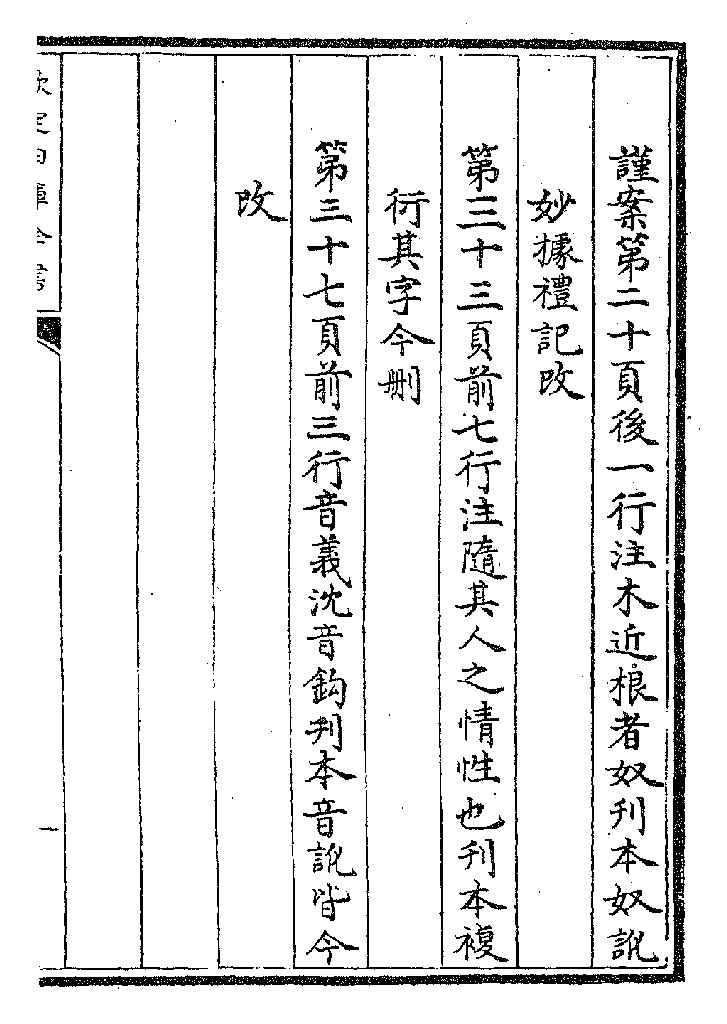 謹案第二十頁後一行注木近根者奴刊本奴訛
妙據禮記改
第三十三頁前七行注隨其人之情性也刊本複
衍其字今刪
第三十七頁前三行音義沈音鈎刊本音訛皆今
改
欽定四庫全書
一